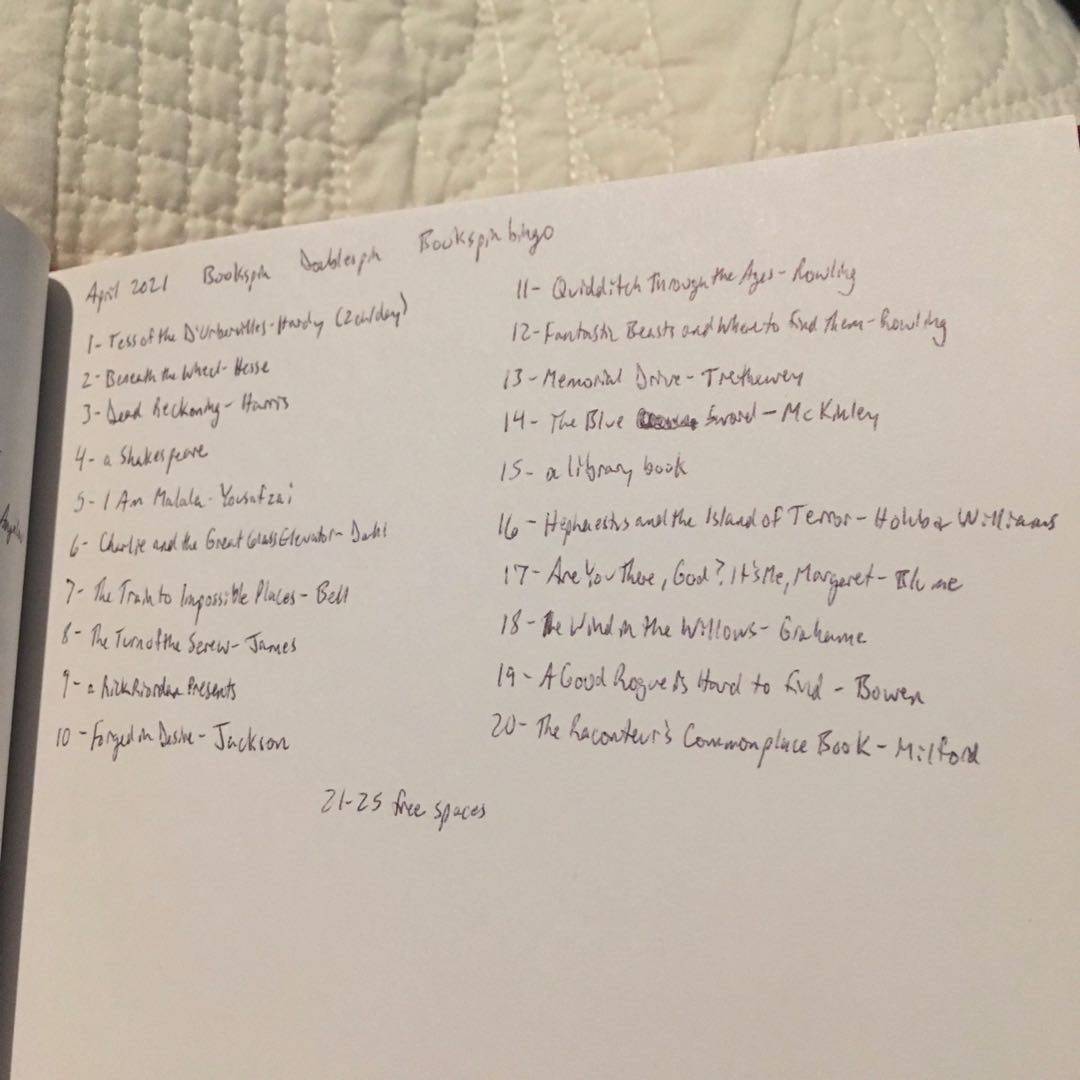 April 2021 Bookspin Doublespin Bookspin bingo
1- Tess of the D'Urbervilles - Hardy (2 ch/day)
2- Beneath the Wheel - Hesse
3- Dead Reckoning - Harris
4- a Shakespeare
5- I Am Malala - Yousafzai
6- Charlie and the Great Glass Elevator - Dahl
7- The Train to Impossible Places - Bell
8- The Turn of the Screw - James
9- a Rick Riordan Presents
10- Forged in Desire - Jackson
11- Quidditch Through the Ages - Rowling
12- Fantastic Beasts and Where to Find Them - Rowling
13- Memorial Drive - Trethewey
14- The Blue Sword - McKinley
15- a library book
16- Hephaestus and the Island of Terror - Holub & Williams
17- Are You There, God? It's Me, Margaret - Blume
18- The Wind in the Willows - Grahame
19- A Good Rogue is Hard to Find - Bowen
20- The Raconteur's Commonplace Book - Milford
21-25 free spaces